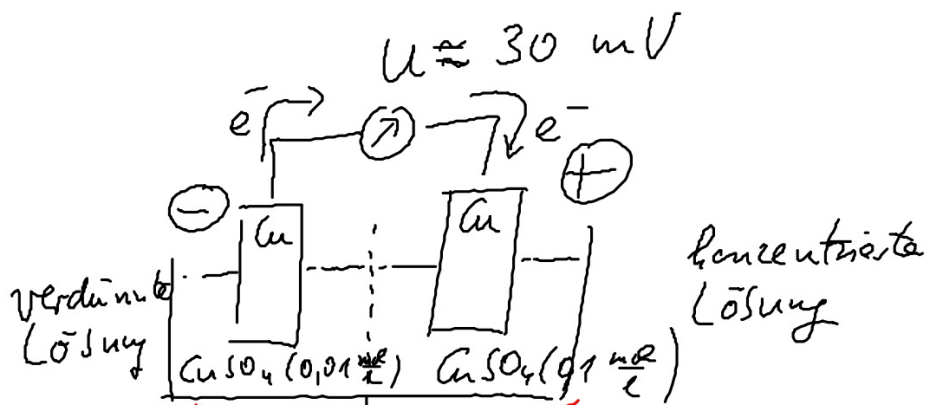 U ≈ 30 mV
e⁻ e⁻
− +
Cu Cu
verdünnte Lösung
konzentrierte Lösung
CuSO₄ (0,01 mol/l) CuSO₄ (0,1 mol/l)